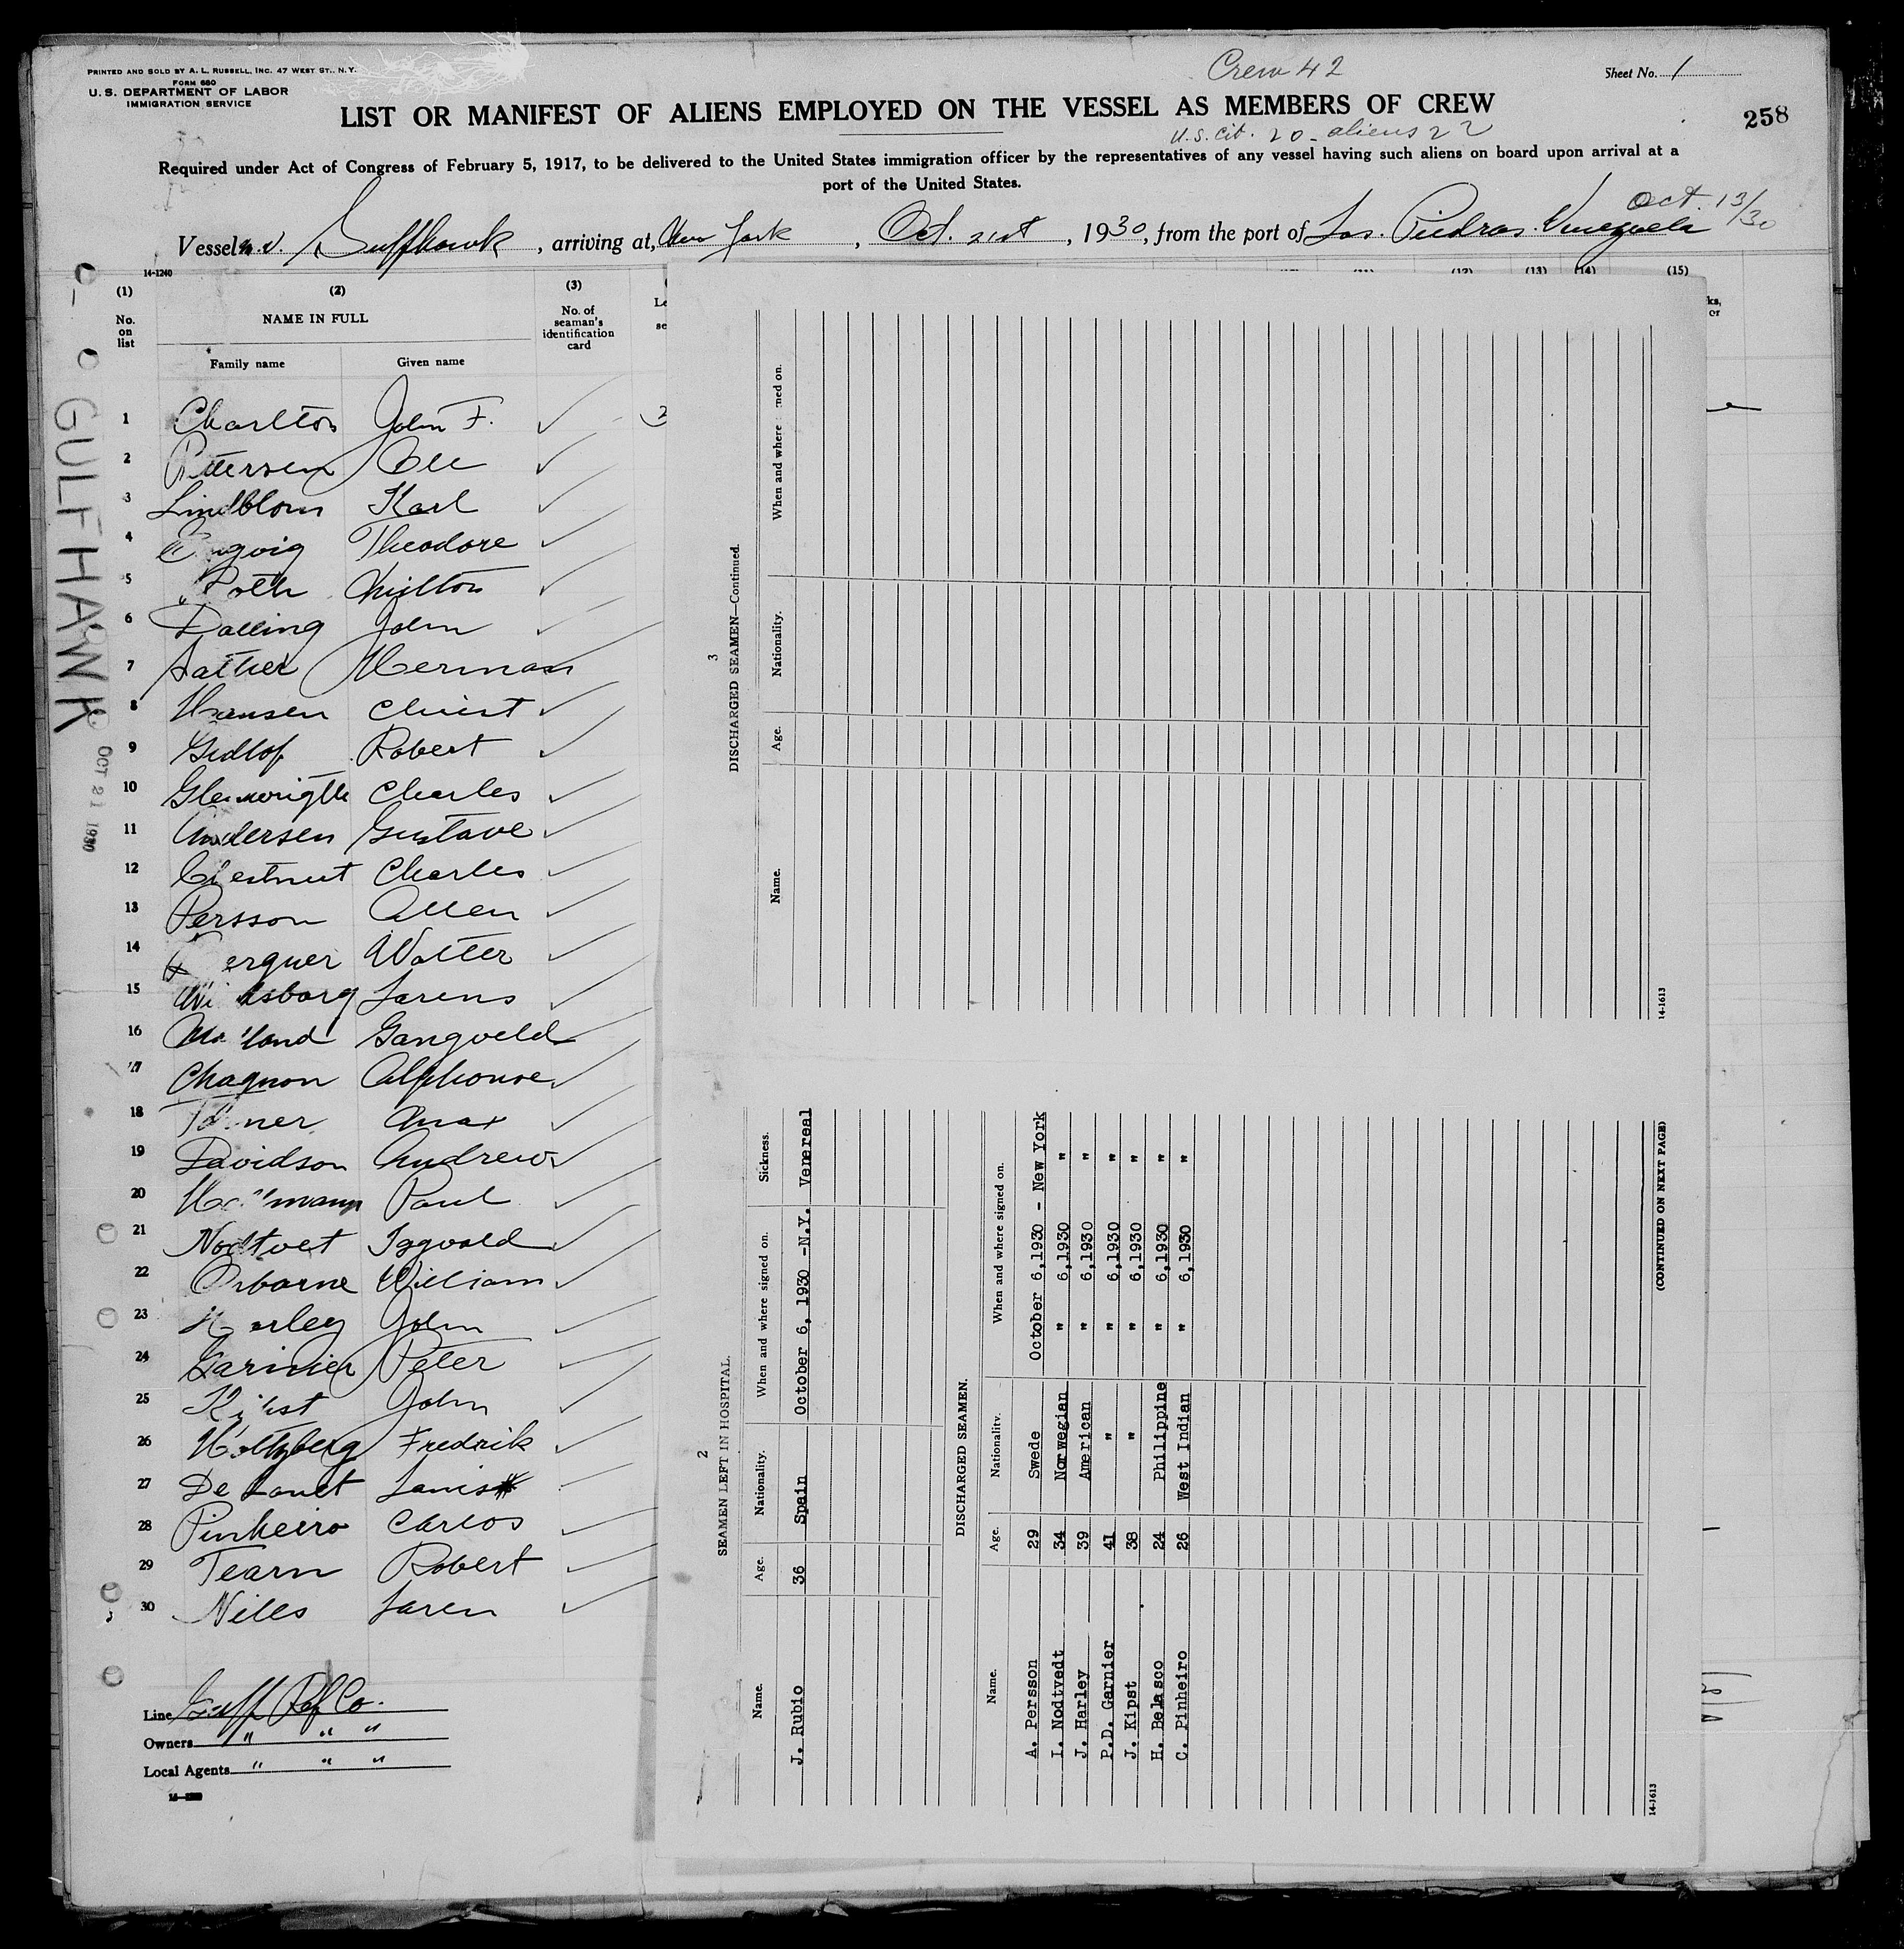 PRINTED AND SOLD BY A. L. RUSSELL, INC. 47 WEST ST., N.Y.
FORM 680
U. S. DEPARTMENT OF LABOR
IMMIGRATION SERVICE
Crew 42
Sheet No. 1
258
LIST OR MANIFEST OF ALIENS EMPLOYED ON THE VESSEL AS MEMBERS OF CREW
U.S. Cit. 20 - aliens 22
Required under Act of Congress of February 5, 1917, to be delivered to the United States immigration officer by the representatives of any vessel having such aliens on board upon arrival at a
port of the United States.
Oct. 13/30
Vessel Gulfhawk, arriving at, New York, Oct. 21st, 1930, from the port of Las Piedras Venezuela
14-1240
(1) (2) (3) (12) (13) (14) (15)
No. on list
NAME IN FULL
No. of seaman's identification card
Family name Given name
GULFHAWK
OCT 21 1930
1 Charlton John F.
2 Pettersen Ole
3 Lindblom Karl
4 Theodore
5 Milton
6 Dalling John
7 Sather Herman
8 Hansen Christ
9 Gidlof Robert
10 Glenwright Charles
11 Andersen Gustave
12 Chestnut Charles
13 Persson Allen
14 Walter
15 Larens
16 Gangveld
17 Chagnon Alphonse
18 Max
19 Davidson Andrew
20 Paul
21 Nodtvet Inguald
22 Osborne William
23 Harley John
24 Garnier Peter
25 Kipst John
26 Holtzberg Fredrik
27 De
28 Pinheiro Carlos
29 Tearn Robert
30 Niles Laren
Line Gulf Ref Co.
Owners " " "
Local Agents " " "
2
SEAMEN LEFT IN HOSPITAL.
Name. Age. Nationality. When and where signed on. Sickness.
J. Rubio 36 Spain October 6, 1930 -N.Y. Venereal
DISCHARGED SEAMEN.
Name. Age. Nationality. When and where signed on.
A. Persson 29 Swede October 6,1930 - New York
I. Nodtvedt 34 Norwegian " 6,1930 "
J. Harley 39 American " 6,1930 "
P.D. Garnier 41 " " 6,1930 "
J. Kipst 38 " " 6,1930 "
H. Belasco 24 Philippine " 6,1930 "
C. Pinheiro 26 West Indian " 6,1930 "
(CONTINUED ON NEXT PAGE)
14-1613
3
DISCHARGED SEAMEN—Continued.
Name. Age. Nationality. When and where med on.
14-1613